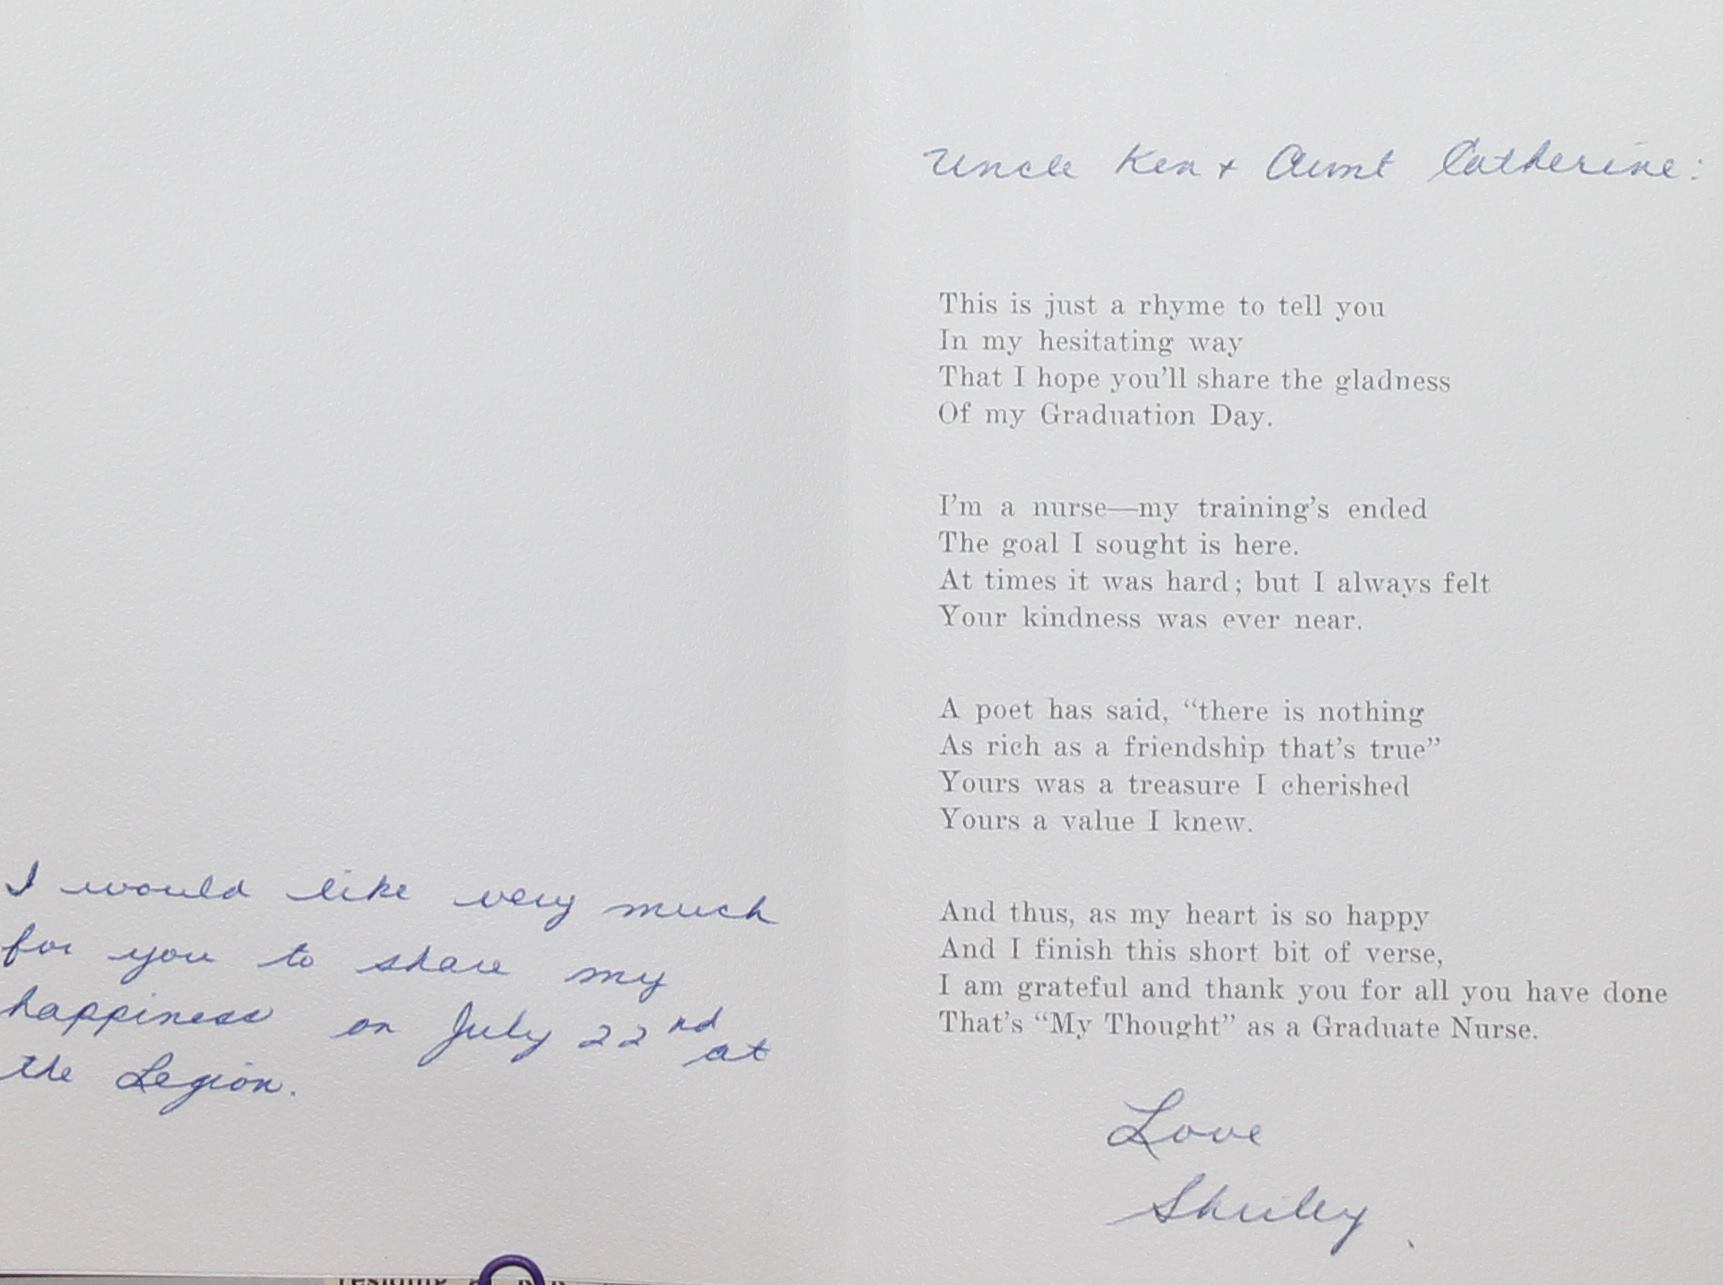 I would like very much
for you to share my
happiness on July 22nd at
the Legion.
Uncle Ken + Aunt Catherine:
This is just a rhyme to tell you
In my hesitating way
That I hope you'll share the gladness
Of my Graduation Day.
I'm a nurse—my training's ended
The goal I sought is here.
At times it was hard; but I always felt
Your kindness was ever near.
A poet has said, “there is nothing
As rich as a friendship that's true”
Yours was a treasure I cherished
Yours a value I knew.
And thus, as my heart is so happy
And I finish this short bit of verse,
I am grateful and thank you for all you have done
That's “My Thought” as a Graduate Nurse.
Love
Shirley.